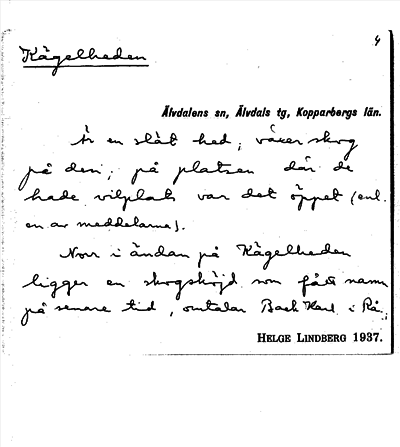 4
Kägelheden
Älvdalens sn, Älvdals tg, Kopparbergs län.
Är en slät hed, växer skog
på den, på platsen där de
hade vilplats var det öppet (enl.
en av meddelarna).
Norr i ändan på Kägelheden
ligger en skogshöjd som fått namn
på senare tid, omtalar Back Karl i Rå.
HELGE LINDBERG 1937.